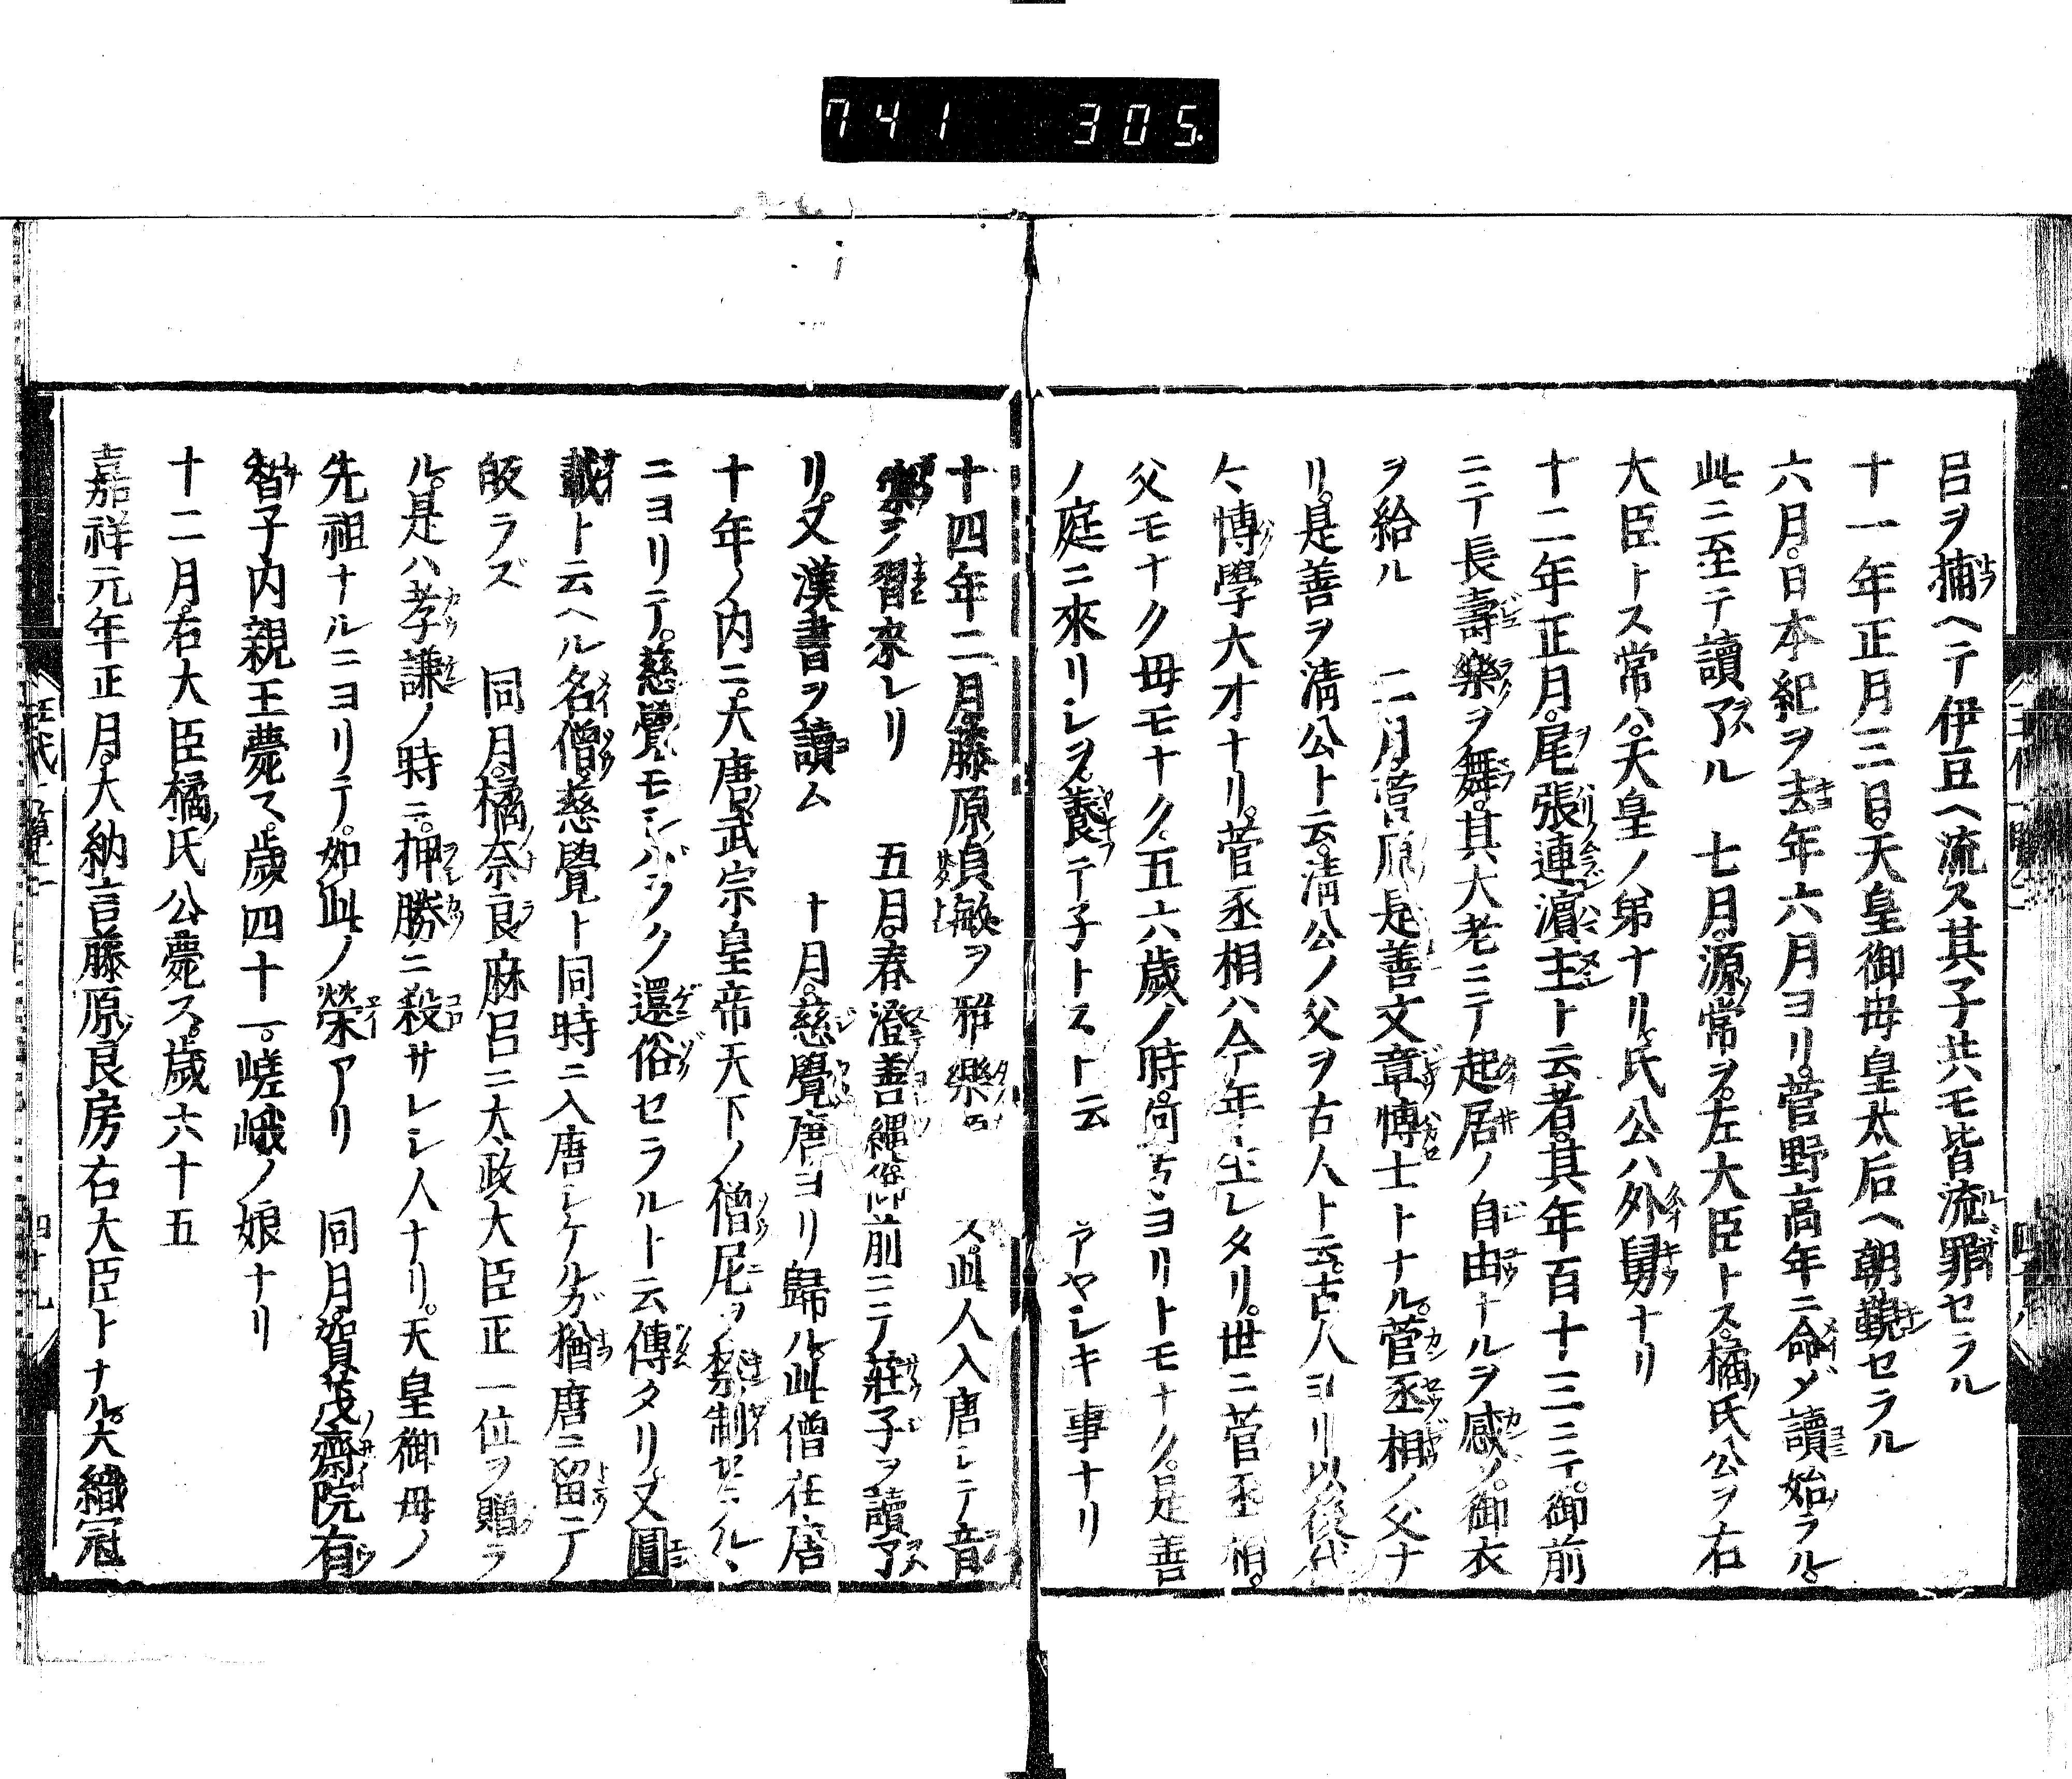 741 305
呂ヲ捕ヘテ伊豆ヘ流ス其子共モ皆流罪セラル
十一年正月三日天皇御母皇太后ヘ朝覲セラル
六月日本紀ヲ去年六月ヨリ菅野高年ニ命ジ讀始ラル
此ニ至テ讀了ル 七月源常ヲ左大臣トス橘氏公ヲ右
大臣トス常ハ天皇ノ弟ナリ氏公ハ外舅ナリ
十二年正月尾張連濵主ト云者其年百十三ニテ御前
ニテ長壽樂ヲ舞其大老ニテ起居ノ自由ナルヲ感ジ御衣
ヲ給ル 二月菅原是善文章博士トナル菅丞相ノ父ナ
リ是善ヲ淸公ト云淸公ノ父ヲ古人ト云古人ヨリ以後代
々博學大才ナリ菅丞相ハ今年生レタリ世ニ菅丞相
父モナク母モナク五六歲ノ時何方ヨリトモナク是善
ノ庭ニ來リシヲ養テ子トスト云 アヤシキ事ナリ
十四年二月藤原貞敏ヲ雅樂 ス此人入唐シテ音
樂ヲ習來レリ 五月春澄善縄 御前ニテ莊子ヲ讀了
リ又漢書ヲ讀ム 十月慈覺唐ヨリ歸ル此僧在唐
十年ノ内ニ大唐武宗皇帝天下ノ僧尼ヲ禁制セラル
ニヨリテ慈覺モシバラク還俗セラルト云傳タリ又圓
載ト云ヘル名僧慈覺ト同時ニ入唐シケルガ猶唐ニ留テ
皈ラズ 同月橘奈良麻呂ニ太政大臣正一位ヲ贈ラ
ル是ハ孝謙ノ時ニ押勝ニ殺サレシ人ナリ天皇御母ノ
先祖ナルニヨリテ如此ノ榮アリ 同月賀茂齋院有
智子内親王薨ス歲四十一嵯峨ノ娘ナリ
十二月右大臣橘氏公薨ス歲六十五
嘉祥元年正月大納言藤原良房右大臣トナル大織冠